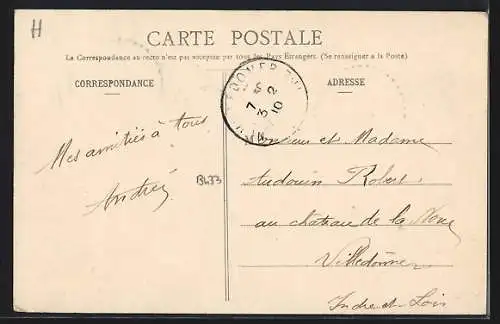 H
CARTE POSTALE
La Correspondance au recto n'est pas acceptée par tous les Pays Étrangers. (Se renseigner à la Poste)
CORRESPONDANCE
ADRESSE
Mes amitiés à tous
André
B433
7 3 10
Monsieur et Madame
Audouin Robert
au château de la Noue
Villedômer
Indre-et-Loir